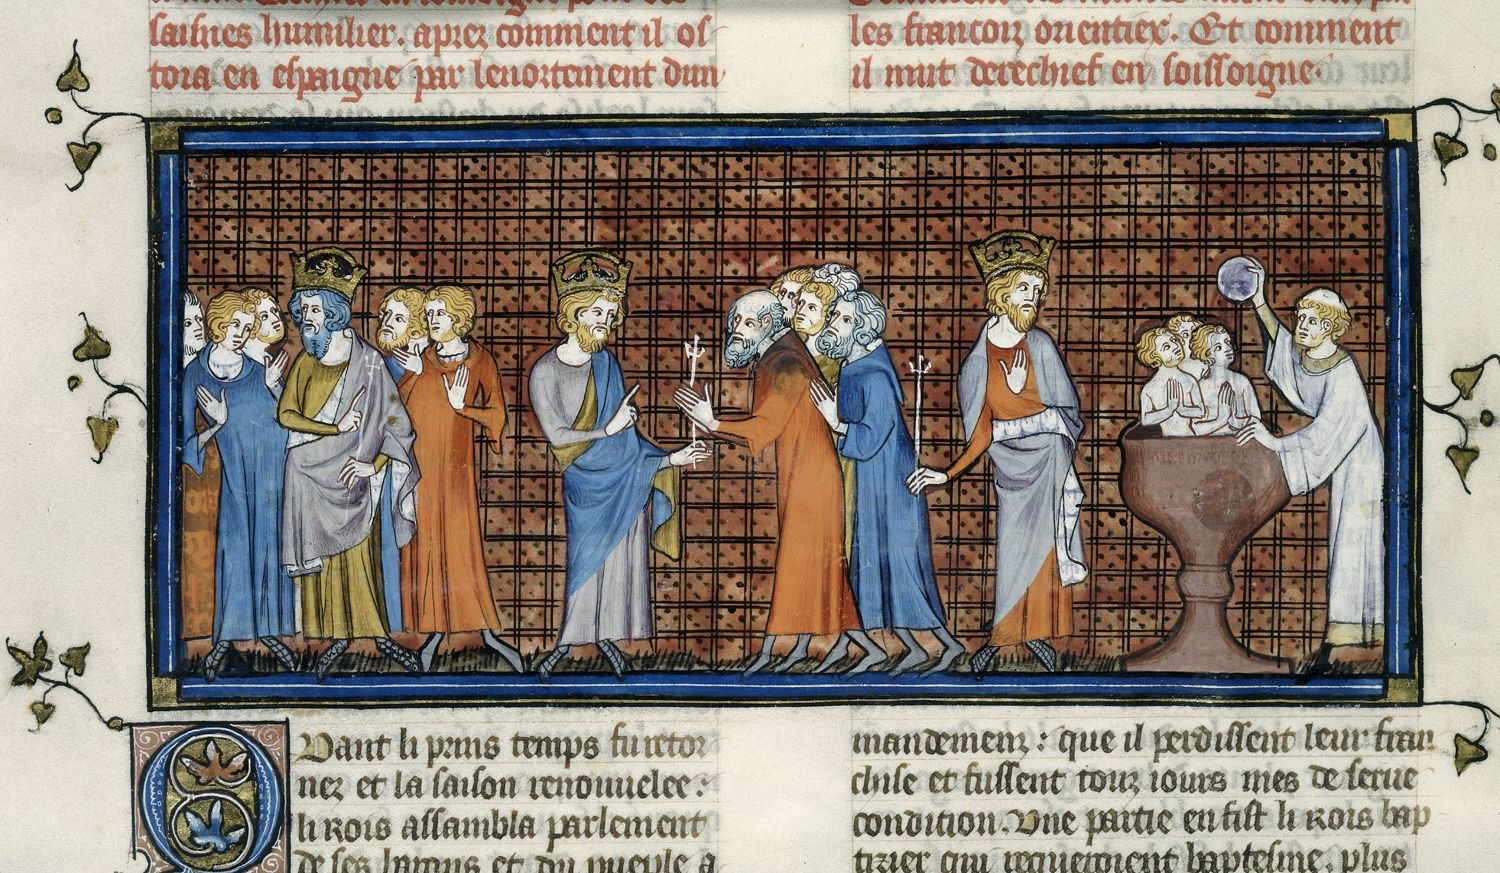 saisnes humilier. apres comment il os
tora en espaigne par lenortement dun
les francoiz orientiex. Et comment
il mut derechief en soissoigne.
Quant li prins temps fu retor
nez et la saison renouuelee:
li Rois assambla parlement
de ses barons et du pueple a
mandemenz: que il perdissent leur fran
chise et fussent touz iours mes de serue
condition. Une partie en fist li Rois bap
tizier qui requeroient baptesme. plus